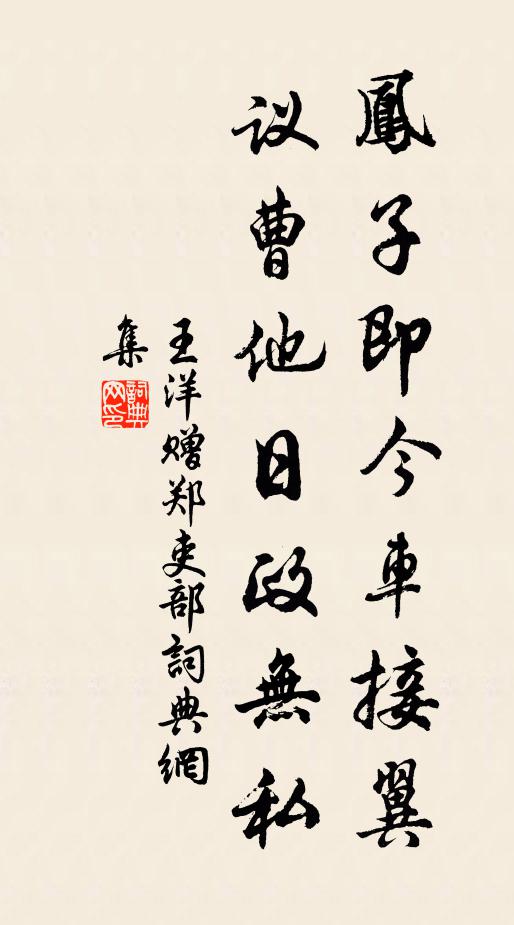 鳳子即今车接翼
议曹他日政無私
王洋赠郑吏部詞典網
集
詞典网印